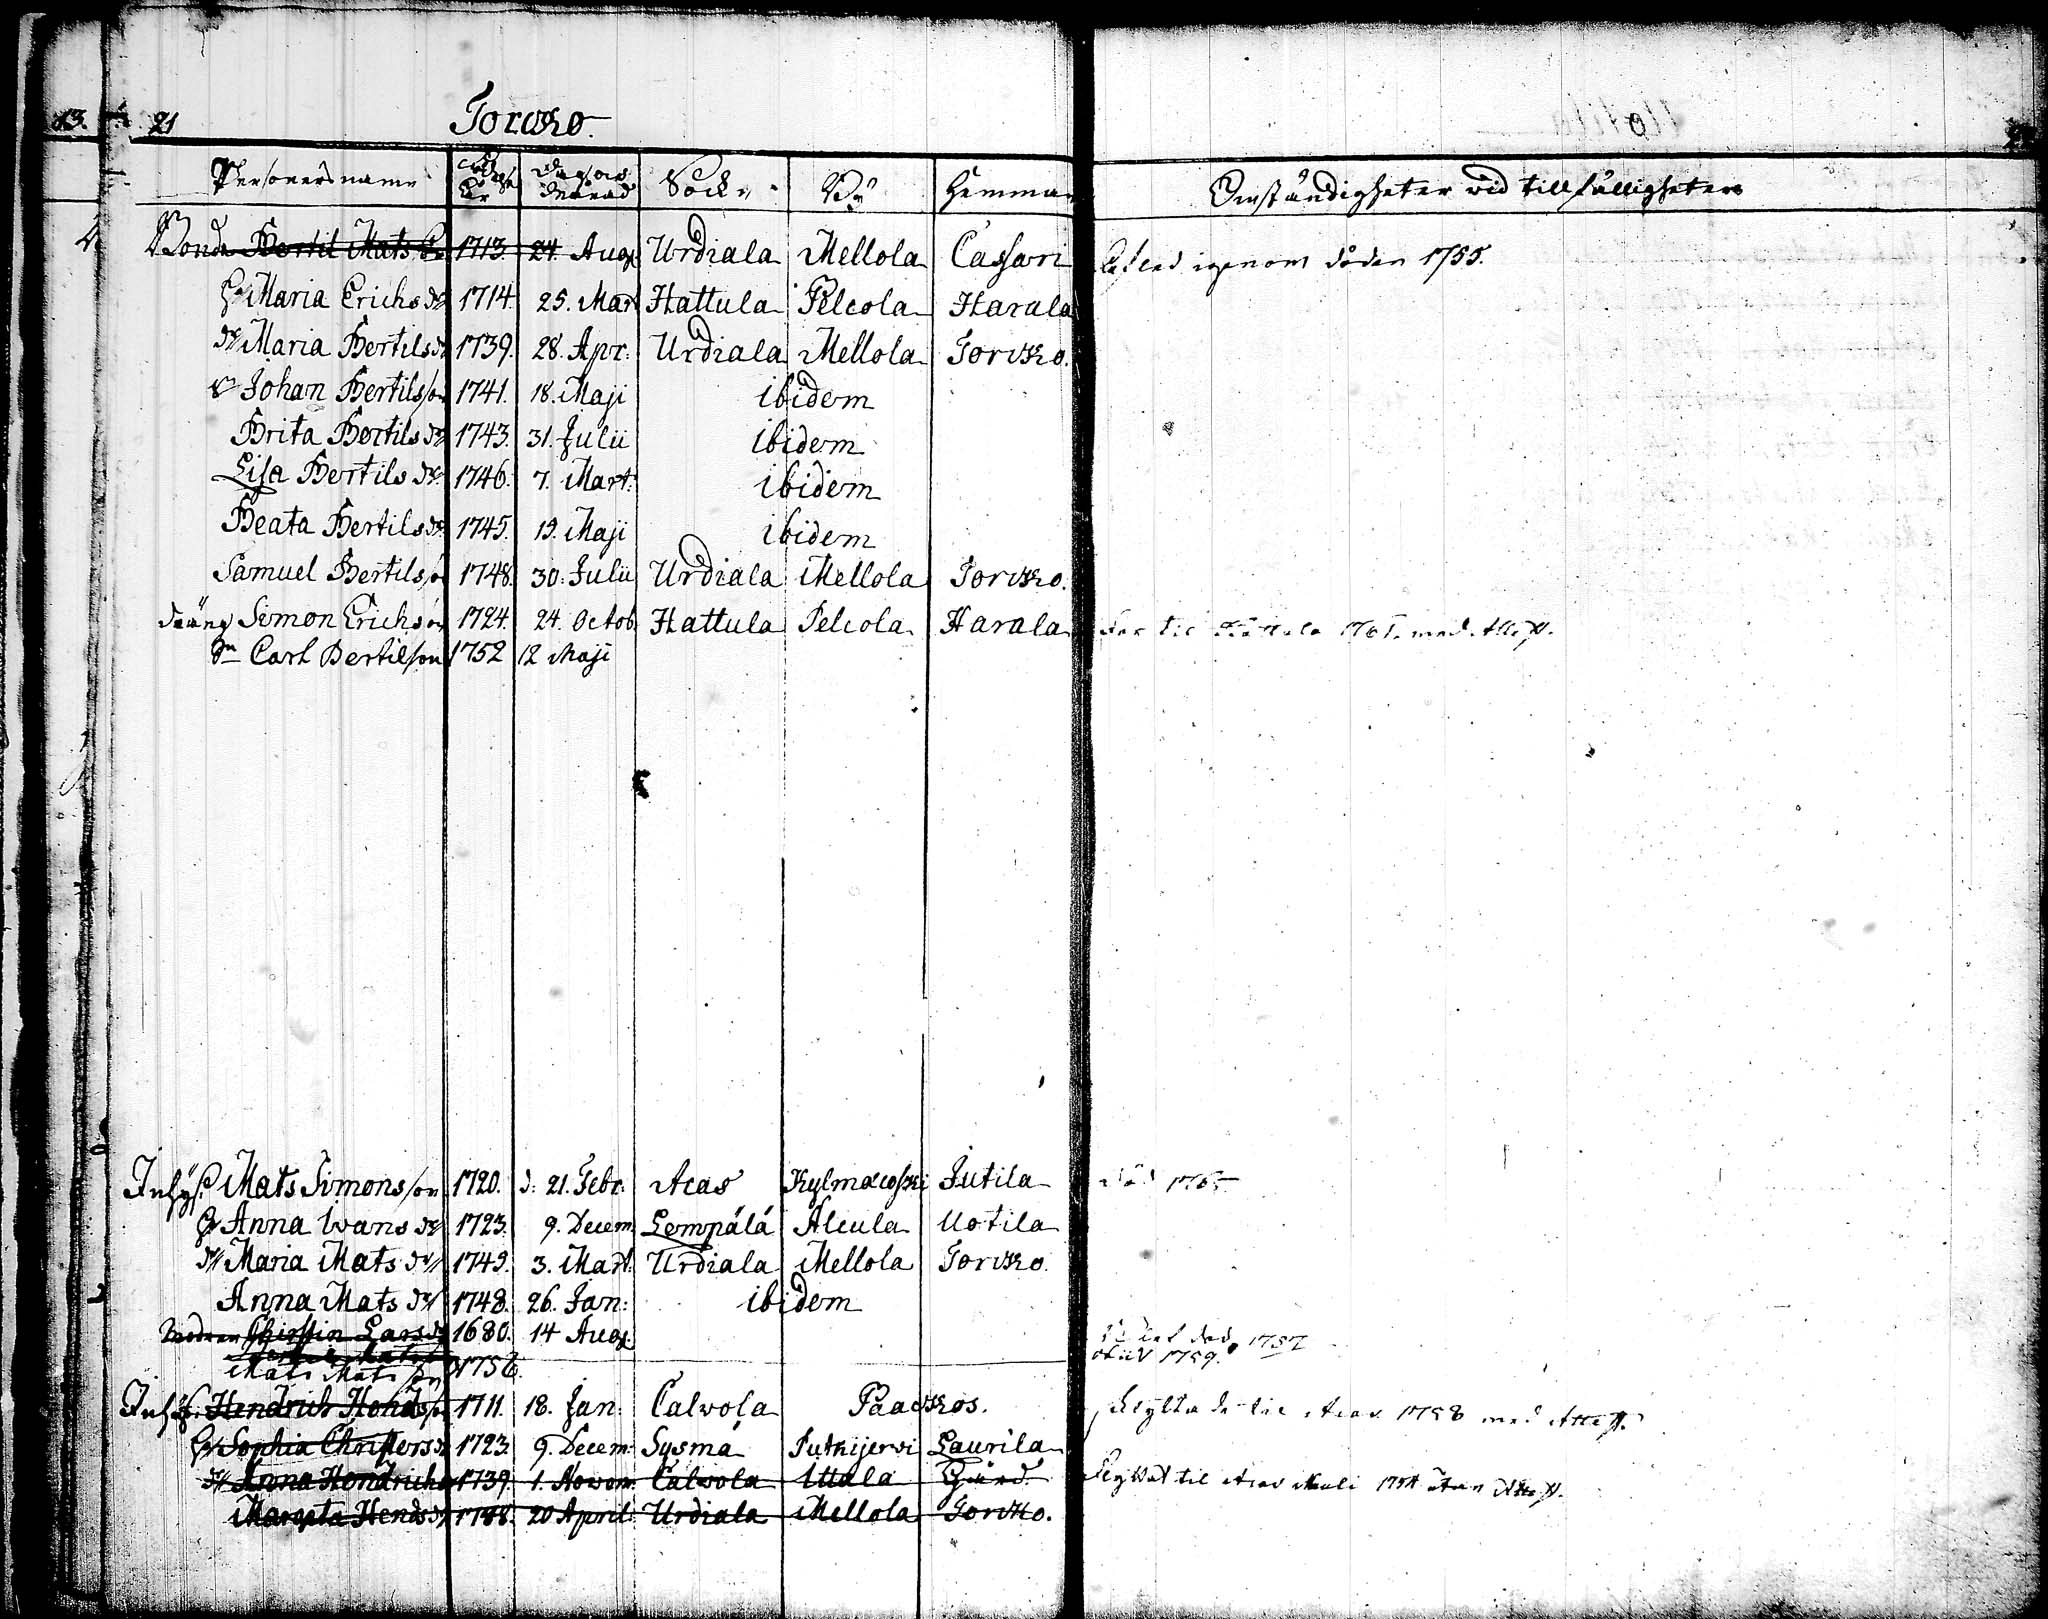 13. 21 Torcko.
Personers namn Födelse År Dagar Månad Sock:n By Hemman Omständigheter vid tillfälligheter
4 Bonde Bertil Mats 1713. 24. Aug: Urdiala Mellola Cassari igenom döden 1755.
Maria Erichs dr 1714. 25. Mart Hattula Pelcola Harala
dr Maria Bertils dr 1739. 28. Apr: Urdiala Mellola Torcko.
Johan Bertilsson 1741. 18. Maji ibidem
Brita Bertils dr 1743. 31. Julii ibidem
Lisa Bertils dr 1746. 7. Mart: ibidem
Beata Bertils dr 1745. 19. Maji ibidem
Samuel Bertilsson 1748. 30. Julii Urdiala Mellola Torcko.
dräng Simon Erichson 1724. 24. Octob. Hattula Pelcola Harala til med Att:
Sn Carl Bertilson 1752 12 Maji
Inhys: Mats Simonsson 1720. d. 21. Febr: Acas Kylmäcoski Jutila död
Anna Ivans dr 1723. 9. Decem Lempälä Alcula Uotila
dr Maria Mats dr 1749. 3. Mart. Urdiala Mellola Torcko.
Anna Mats dr 1748. 26. Jan: ibidem
Modren Christin Lars dr 1680. 14 Aug: död 1757
Mats Mats son 1756. obiit 1759.
Inhys: Hendrich Hendsson 1711. 18. Jan: Calvola Paackos. flyttade til Acas 1758 med Att:
Sophia Christers dr 1723. 9. Decem: Sysmä Putkijervi Laurila
dr Anna Hendrichs 1739. 1. Novem: Calvola Ittala Gård. flyttat til Acas utan Att:
Margeta Hends dr 1748. 20 April: Urdiala Mellola Torcko.